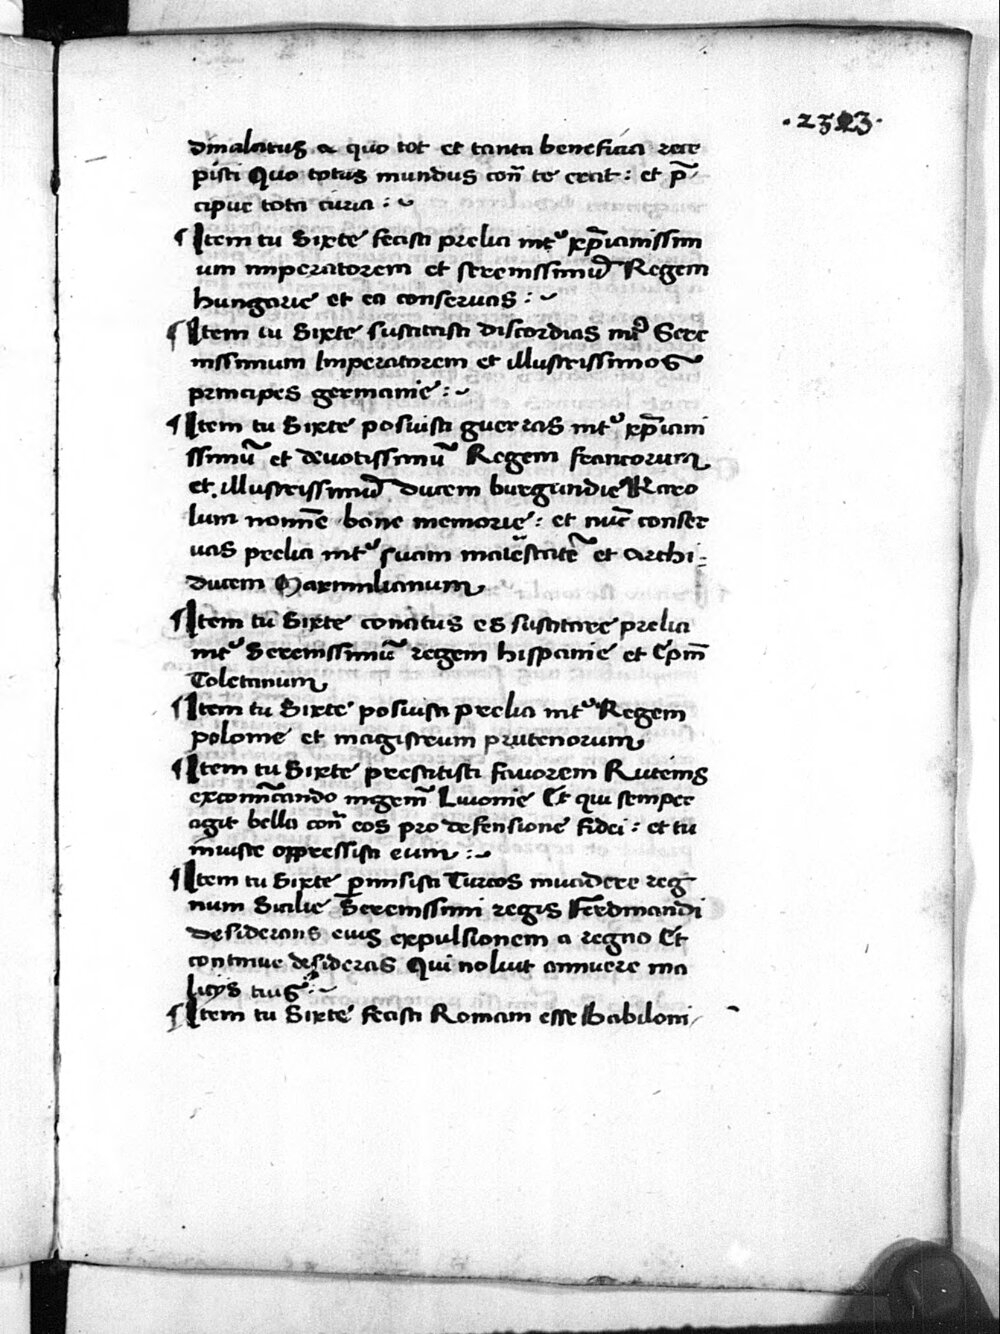 ·2323·
dinalatus a quo tot et tanta beneficia rece
pisti Quo totus mundus con̄ te erat: et p̄
cipue tota curia :~
¶ Item tu Sixte fecisti prelia int᷒ xp̄ianissim
um imperatorem et serenissimū Regem
hungarie et ea conservas :~
¶ Item tu Sixte suscitasti discordias int᷒ Sere
nissimum Imperatorem et illustrissimos
principes germanie :~
¶ Item tu Sixte posuisti guerras int᷒ xp̄iani
ssimū et devotissimū Regem francorum
et illustrissimū ducem burgundie Karo
lum nomīe bone memorie: et nūc conser
vas prelia int᷒ suam maiestatē et Archi-
ducem Maximilianum
¶ Item tu Sixte conatus es suscitare prelia
int᷒ Serenissimū regem hispanie et Ep̄m
Toletanum
¶ Item tu Sixte posuisti prelia int᷒ Regem
polonie et magistrum prutenorum
¶ Item tu Sixte prestitisti favorem Rutenis
excom̄icando mgrm̄ Livonie Et qui semper
agit bella con̄ eos pro defensione fidei: et tu
iniuste oppressisti eum :~
¶ Item tu Sixte p̲misisti Turcos invadere reg
num Sicilie Serenissimi regis Ferdinandi
desiderans eius expulsionem a regno Et
continue desideras Qui noluit annuere ma
licijs tuis :~
¶ Item tu Sixte fecisti Romam esse Babiloni